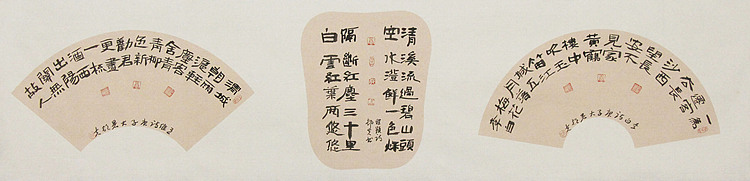 一為
遷客
去長
沙西
望長
安不
見家
黃鶴
樓中
吹玉
笛江
城五
月落
梅花
李白
清溪流過碧山頭
空水澄鮮一色秋
隔斷紅塵三十里
白雲紅葉兩悠悠
程顥詩
渭城
朝雨
浥輕
塵客
舍青
青柳
色新
勸君
更盡
一杯
酒西
出陽
關無
故人